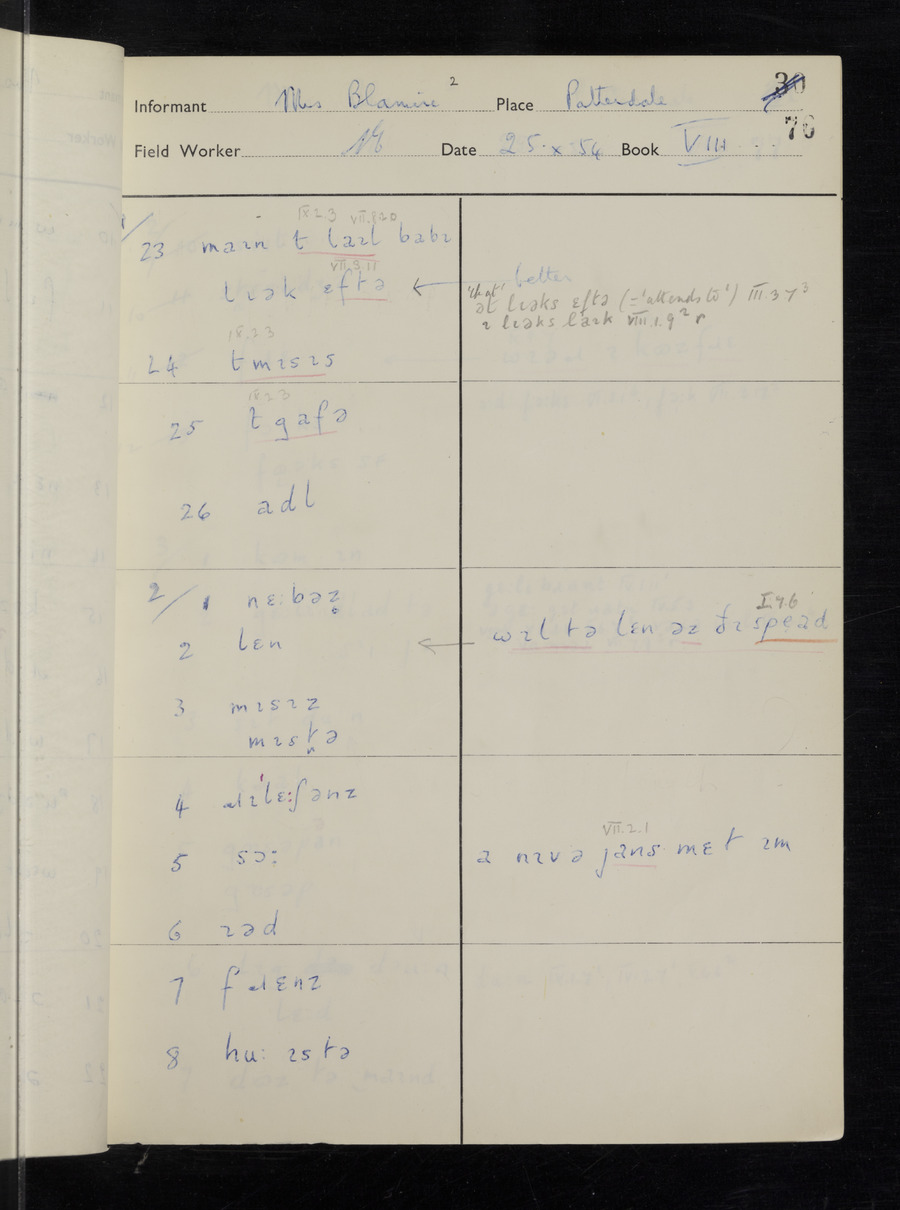 30
2
Informant Mrs Blamire Place Patterdale
76
Field Worker NE Date 25.x.54 Book VIII
1/
IX.2.3
23 maɪn t laɪl babɪ
VII.3.11
lɪək eftə ← better
'that'
ət lɪəks ɛftə (='attends to') III.3.7³
ɪ lɪəks laɪk VIII.1.9² r
24 t mɪsɪs
25 t gafə
26 adl
2/ 1 nɛ:bəz̥
I.7.6
2 len ← wɪl tə lɛn əz ðɪ spead
3 mɪsɪz
mɪstə
4 ɹɪ'lɛ:ʃənz
VII.2.1
5 sɔ: a nɪvə jans mɛt ɪm
6 ɪəd
7 fɹɛnz
8 hu: ɪstə